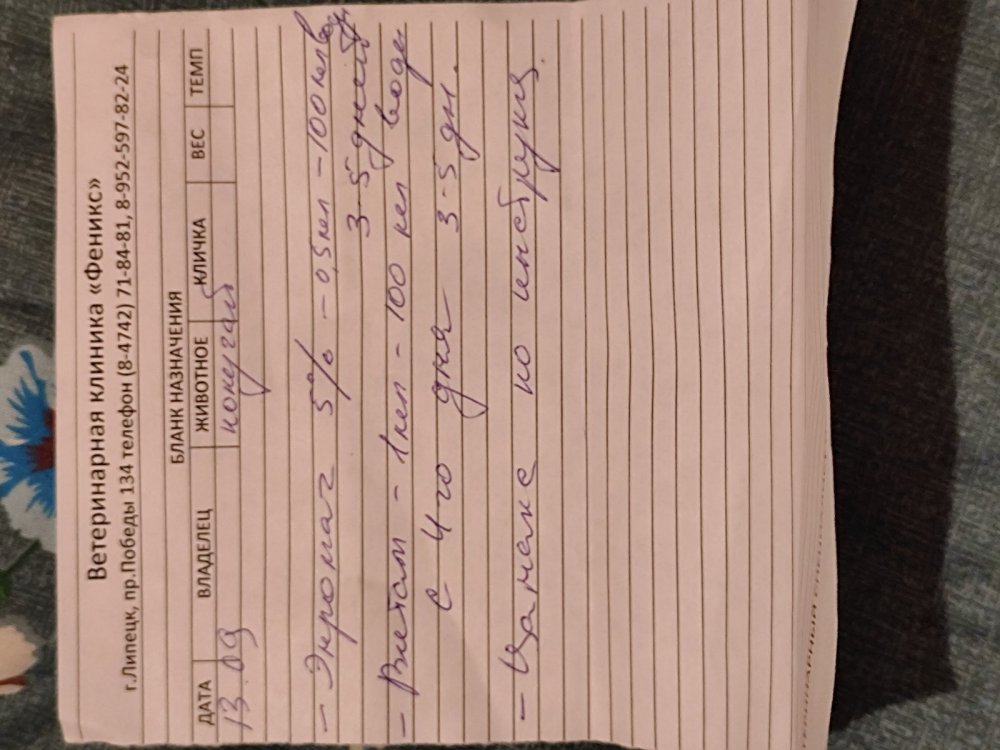 Ветеринарная клиника «Феникс»
г.Липецк, пр.Победы 134 телефон (8-4742) 71-84-81, 8-952-597-82-24
БЛАНК НАЗНАЧЕНИЯ
ДАТА ВЛАДЕЛЕЦ ЖИВОТНОЕ КЛИЧКА ВЕС ТЕМП
13.09 попугай
- Энромаг 5% - 0,5 мл - 100 мл воды
3-5 дней
- Витам - 1 мл - 100 мл воды
с 4го дня 3-5 дн.
- по инструкц.